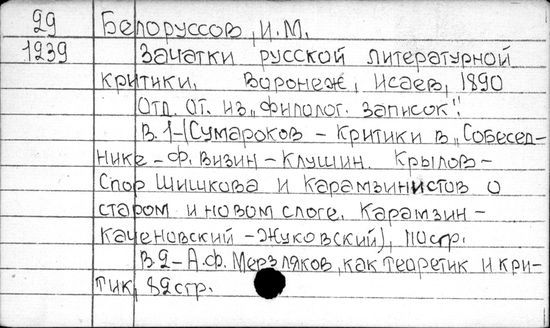 29 Белоруссов, И.М.
1239 Зачатки русской литературной
критики. Воронеж, Исаев, 1890
Отд. от. из „Филолог. записок“.
В. 1-(Сумароков - критики в „Собесед-
нике - Ф. Визин - Клушин. Крылов -
Спор Шишкова и Карамзинистов о
старом и новом слоге. Карамзин -
Каченовский - Жуковский), 110 стр.
В 2 - А.Ф. Мерзляков, как теоретик и кри-
тик, 82 стр.